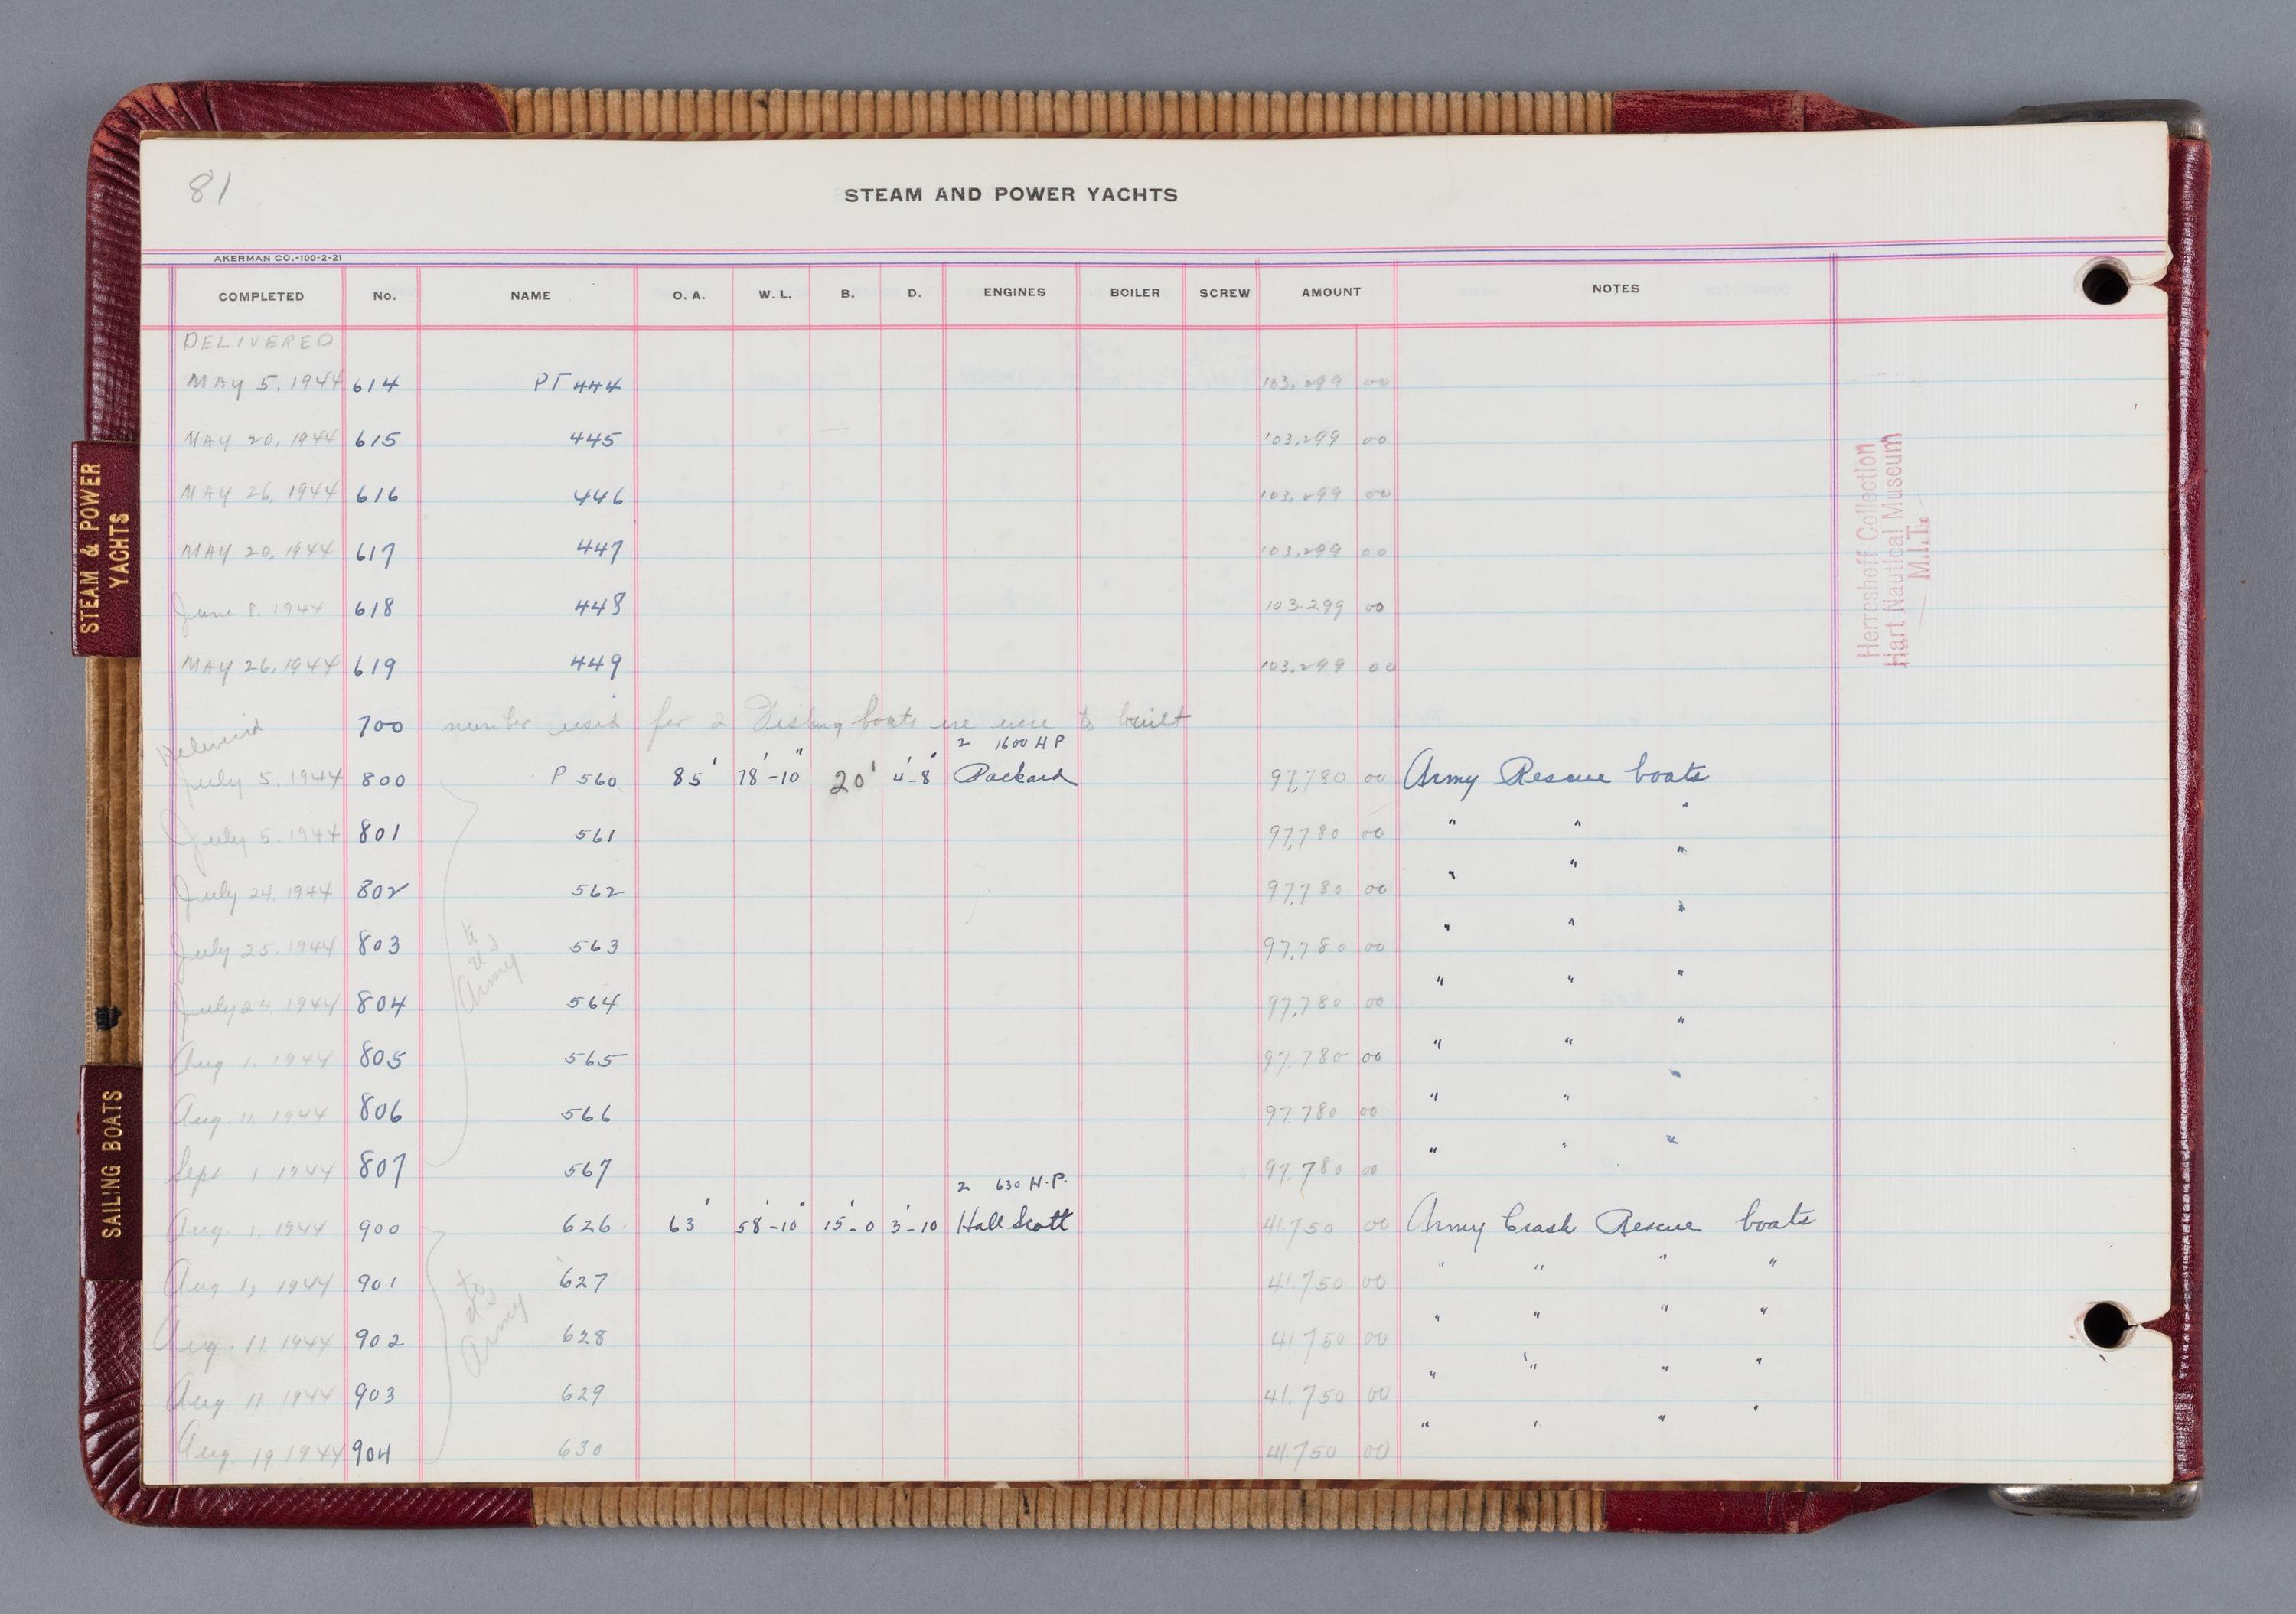 81
STEAM AND POWER YACHTS
AKERMAN CO.-100-2-21
COMPLETED No. NAME O. A. W. L. B. D. ENGINES BOILER SCREW AMOUNT NOTES
DELIVERED
MAY 5. 1944 614 PT 444 103,299 00
MAY 20, 1944 615 445 103,299 00
MAY 26, 1944 616 446 103,299 00
MAY 20, 1944 617 447 103,299 00
June 8. 1944 618 448 103.299 00
MAY 26, 1944 619 449 103,299 00
700 number used for 2 Fishing boats we were to built
2 1600 H P
July 5. 1944 800 P 560 85' 78'-10" 20' 4'-8" Packard 97,780 00 Army Rescue boats
July 5. 1944 801 561 97,780 00 " " "
July 24. 1944 802 562 97,780 00 " " "
July 25. 1944 803 563 97,780 00 " " "
July 24. 1944 804 564 97,780 00 " " "
Aug 1. 1944 805 565 97.780 00 " " "
Aug 11 1944 806 566 97.780 00 " " "
Sept 1 1944 807 567 97.780 00 " " "
to
U S
Army
2 630 H.P.
Aug. 1, 1944 900 626 63' 58'-10" 15'-0 3'-10 Hall Scott 41.750 00 Army Crash Rescue boats
Aug 1, 1944 901 627 41.750 00 " " " "
Aug. 11 1944 902 628 41.750 00 " " " "
Aug 11 1944 903 629 41.750 00 " " " "
Aug. 19. 1944 904 630 41.750 00 " " " "
to
U S
Army
Herreshoff Collection
Hart Nautical Museum
M.I.T.
STEAM & POWER
YACHTS
SAILING BOATS